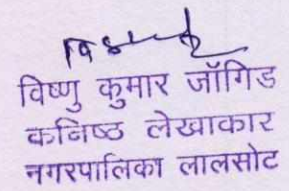 विष्णु कुमार जॉगिड
कनिष्ठ लेखाकार
नगरपालिका लालसोट